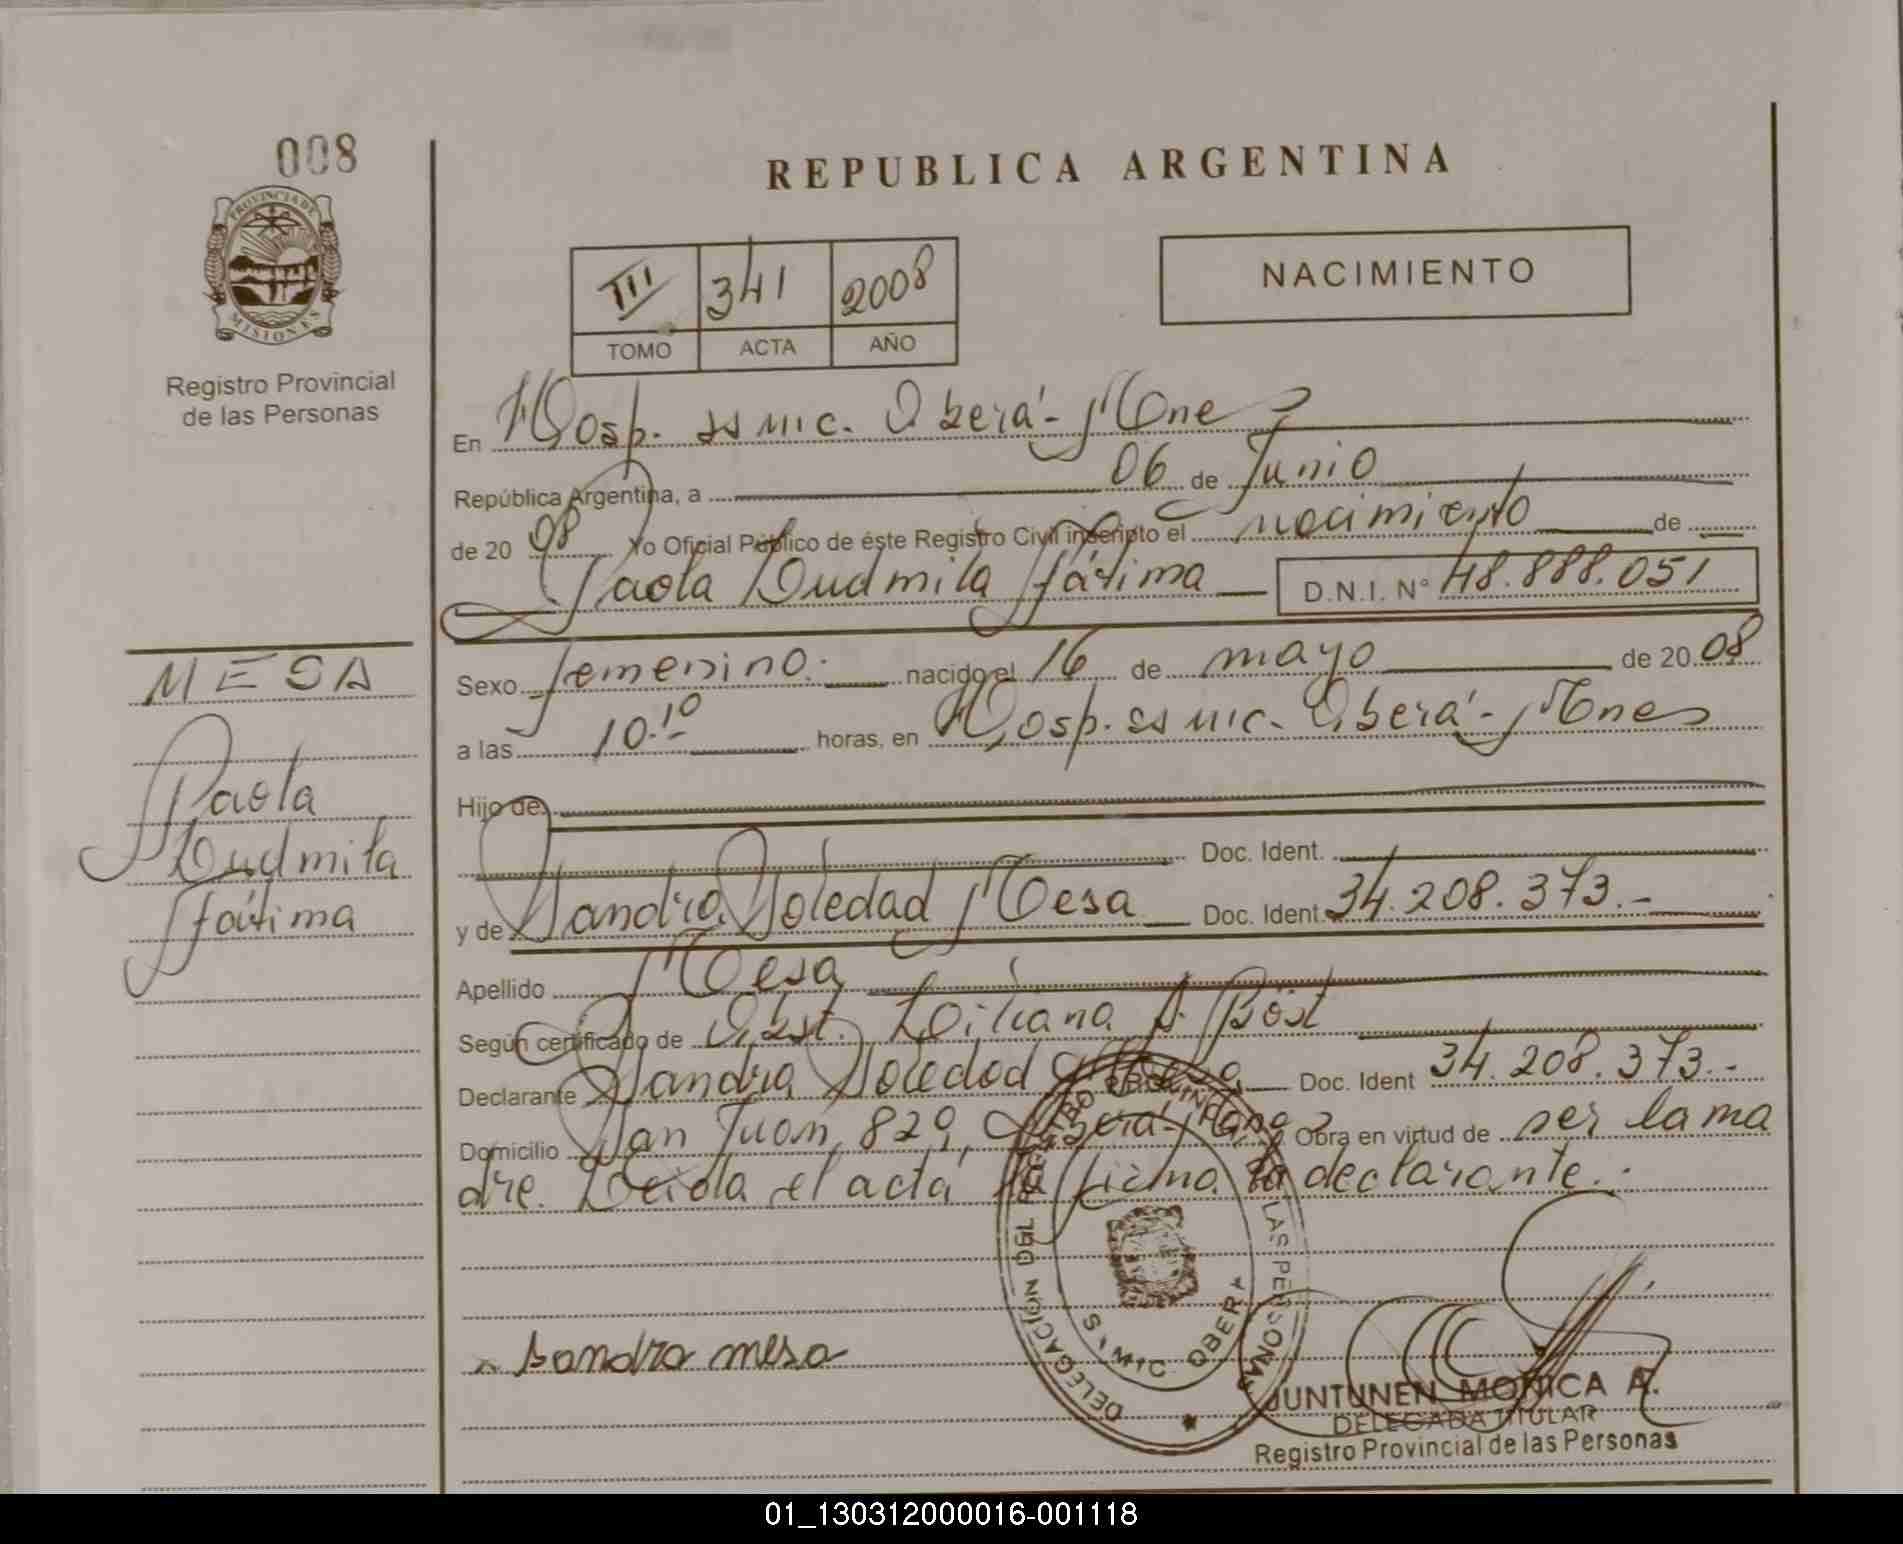 008
PROVINCIA DE
MISIONES
Registro Provincial
de las Personas
REPUBLICA ARGENTINA
III 341 2008
TOMO ACTA AÑO
NACIMIENTO
En Hosp. ss mic. Oberá - Mnes
República Argentina, a 06 de Junio
de 20 08 Yo Oficial Público de éste Registro Civil inscripto el nacimiento de
Paola Ludmila Fátima D.N.I. Nº 48.888.051
MESA
Paola
Ludmila
Fátima
Sexo femenino. nacido el 16 de mayo de 20 08
a las 10.10 horas, en Hosp. ss mic. Oberá - Mnes
Hijo de
Doc. Ident.
y de Sandra Soledad Mesa Doc. Ident. 34.208.373.-
Apellido Mesa
Según certificado de Obst. Liliana A. Böst
Declarante Sandra Soledad Mesa Doc. Ident 34.208.373.-
Domicilio San Juan 829, Oberá, Mnes Obra en virtud de ser la ma
dre. Leida el acta la firma la declarante.-
DELEGACIÓN DEL REGISTRO PROVINCIAL DE LAS PERSONAS
OBERA
sandra mesa
JUNTUNEN MONICA A.
DELEGADA TITULAR
Registro Provincial de las Personas
01_130312000016-001118